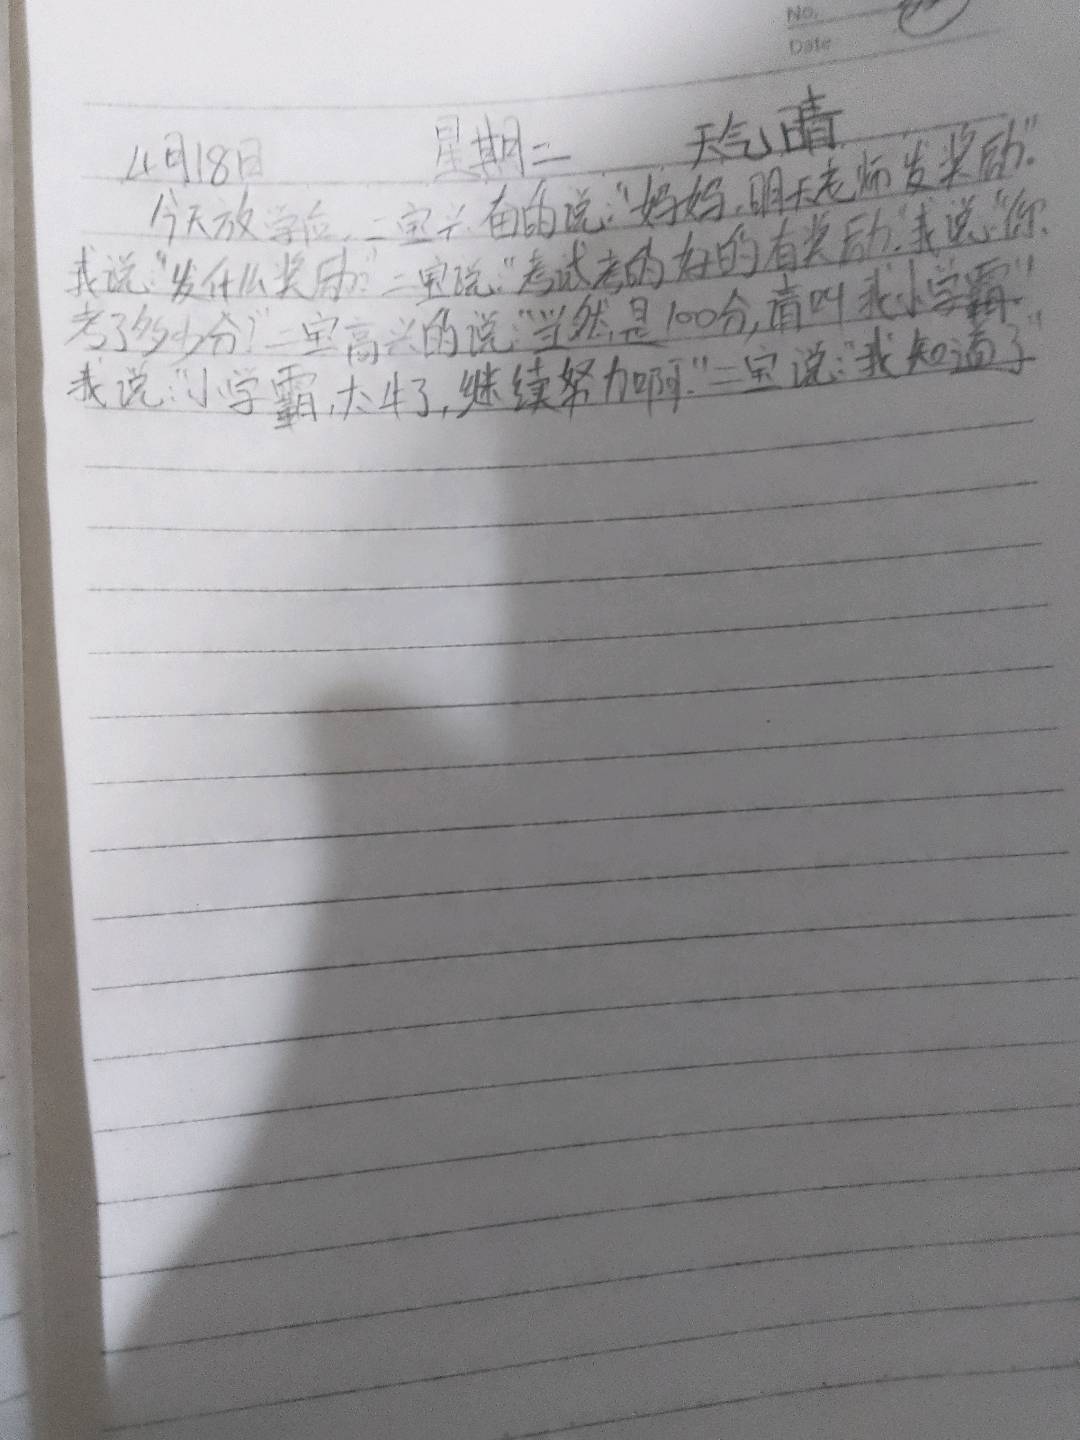 No.
Date
4月18日 星期二 天气晴
今天放学后,二宝兴奋的说:"妈妈,明天老师发奖励."
我说:"发什么奖励?"二宝说:"考试考的好的有奖励."我说:"你
考了多少分?"二宝高兴的说:"当然是100分,请叫我小学霸."
我说:"小学霸,太牛了,继续努力啊."二宝说:"我知道了"